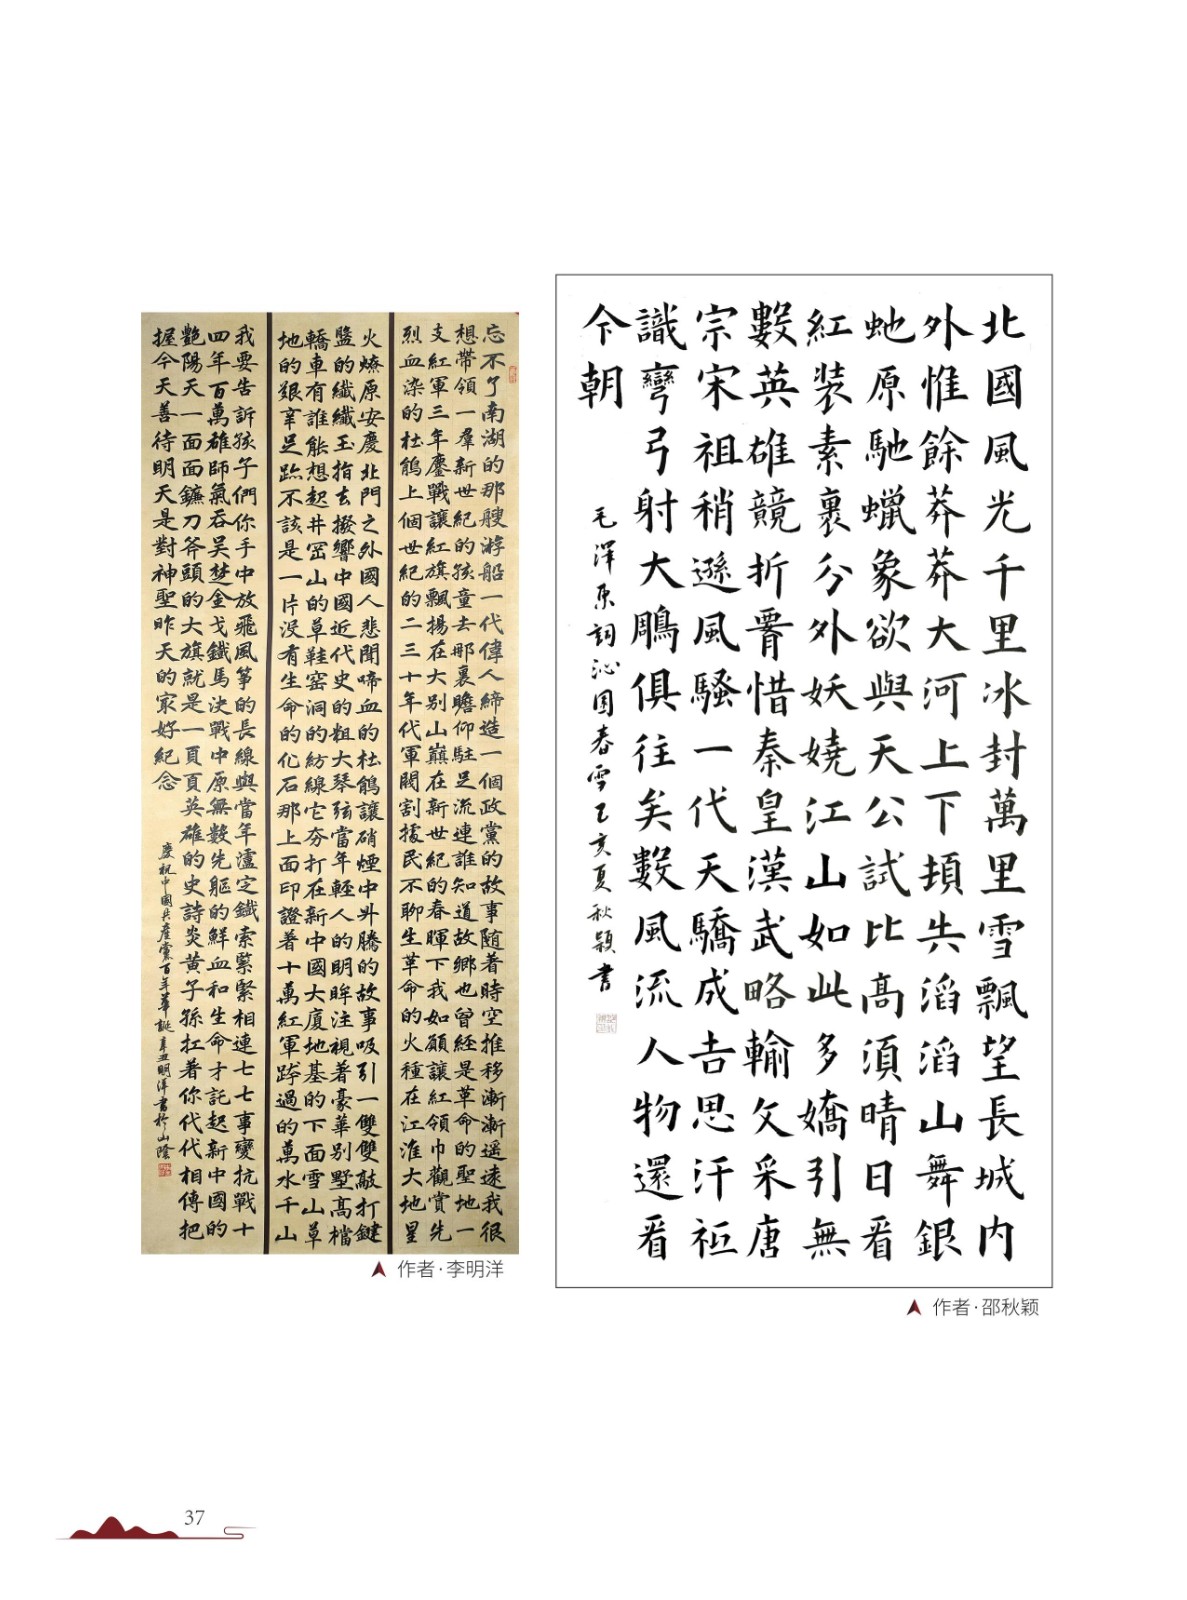 忘不了南湖的那艘游船一代偉人締造一個政黨的故事隨著時空推移漸漸遥遠我很
想帶領一羣新世紀的孩童去那裏瞻仰駐足流連誰知道故鄉也曾經是革命的聖地一
支紅軍三年鏖戰讓紅旗飄揚在大别山巔在新世紀的春暉下我如願讓紅領巾觀賞先
烈血染的杜鵑上個世紀的二三十年代軍閥割據民不聊生革命的火種在江淮大地星
火燎原安慶北門之外國人悲聞啼血的杜鵑讓硝煙中升騰的故事吸引一雙雙敲打鍵
盤的纖纖玉指去撥響中國近代史的粗大琴弦當年輕人的明眸注視著豪華别墅高檔
轎車有誰能想起井岡山的草鞋窑洞的紡線它夯打在新中國大廈地基的下面雪山草
地的艱辛足跡不該是一片没有生命的化石那上面印證著十萬紅軍跨過的萬水千山
我要告訴孩子們你手中放飛風箏的長線與當年瀘定鐵索緊緊相連七七事變抗戰十
四年百萬雄師氣吞吴楚金戈鐵馬决戰中原無數先驅的鮮血和生命才託起新中國的
艷陽天一面面鐮刀斧頭的大旗就是一頁頁英雄的史詩炎黄子孫扛著你代代相傳把
握今天善待明天是對神聖昨天的最好紀念
慶祝中國共産黨百年華誕辛丑明洋書於山陰
作者·李明洋
北國風光千里冰封萬里雪飄望長城内
外惟餘莽莽大河上下頓失滔滔山舞銀
虵原馳蠟象欲與天公試比高須晴日看
紅装素裹分外妖嬈江山如此多嬌引無
數英雄競折腰惜秦皇漢武略輸文采唐
宗宋祖稍遜風騷一代天驕成吉思汗祇
識彎弓射大鵰俱往矣數風流人物還看
今朝
毛澤東詞沁園春雪己亥夏秋穎書
作者·邵秋颖
37